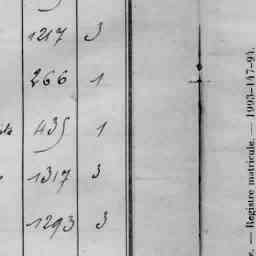 1217 3
266 1
435 1
1317 3
1293 3
— Registre matricule. — 1993-147-94.